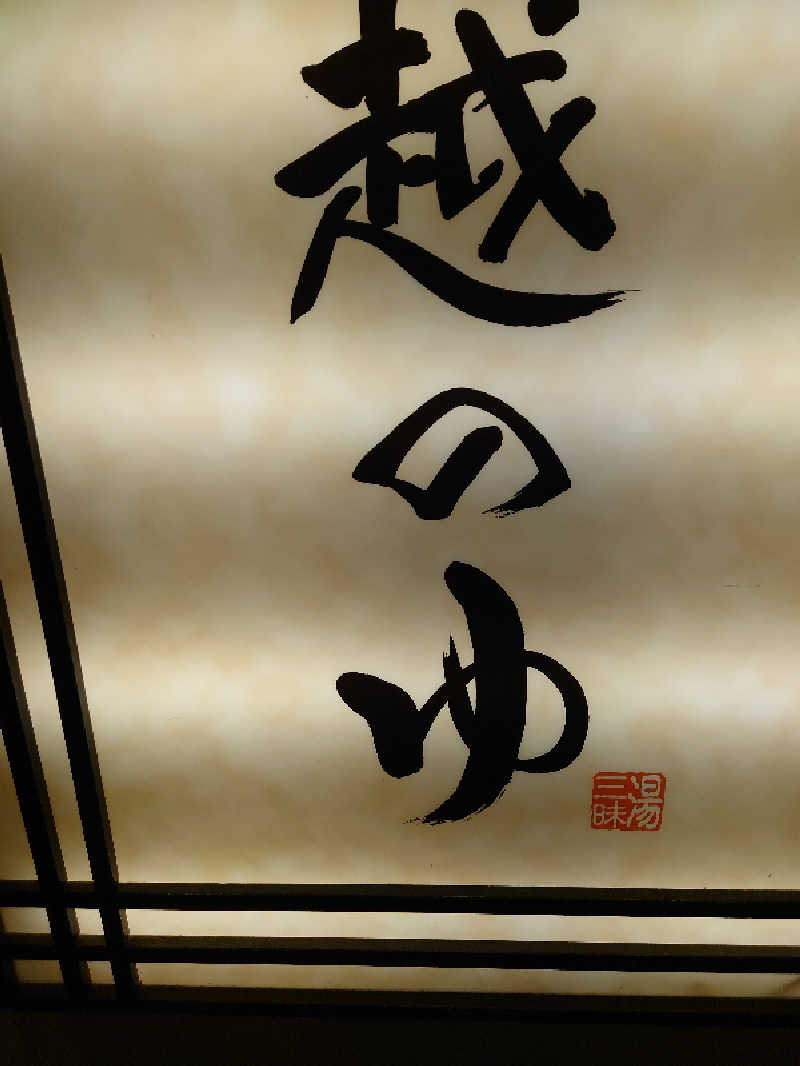 越のゆ
湯三昧